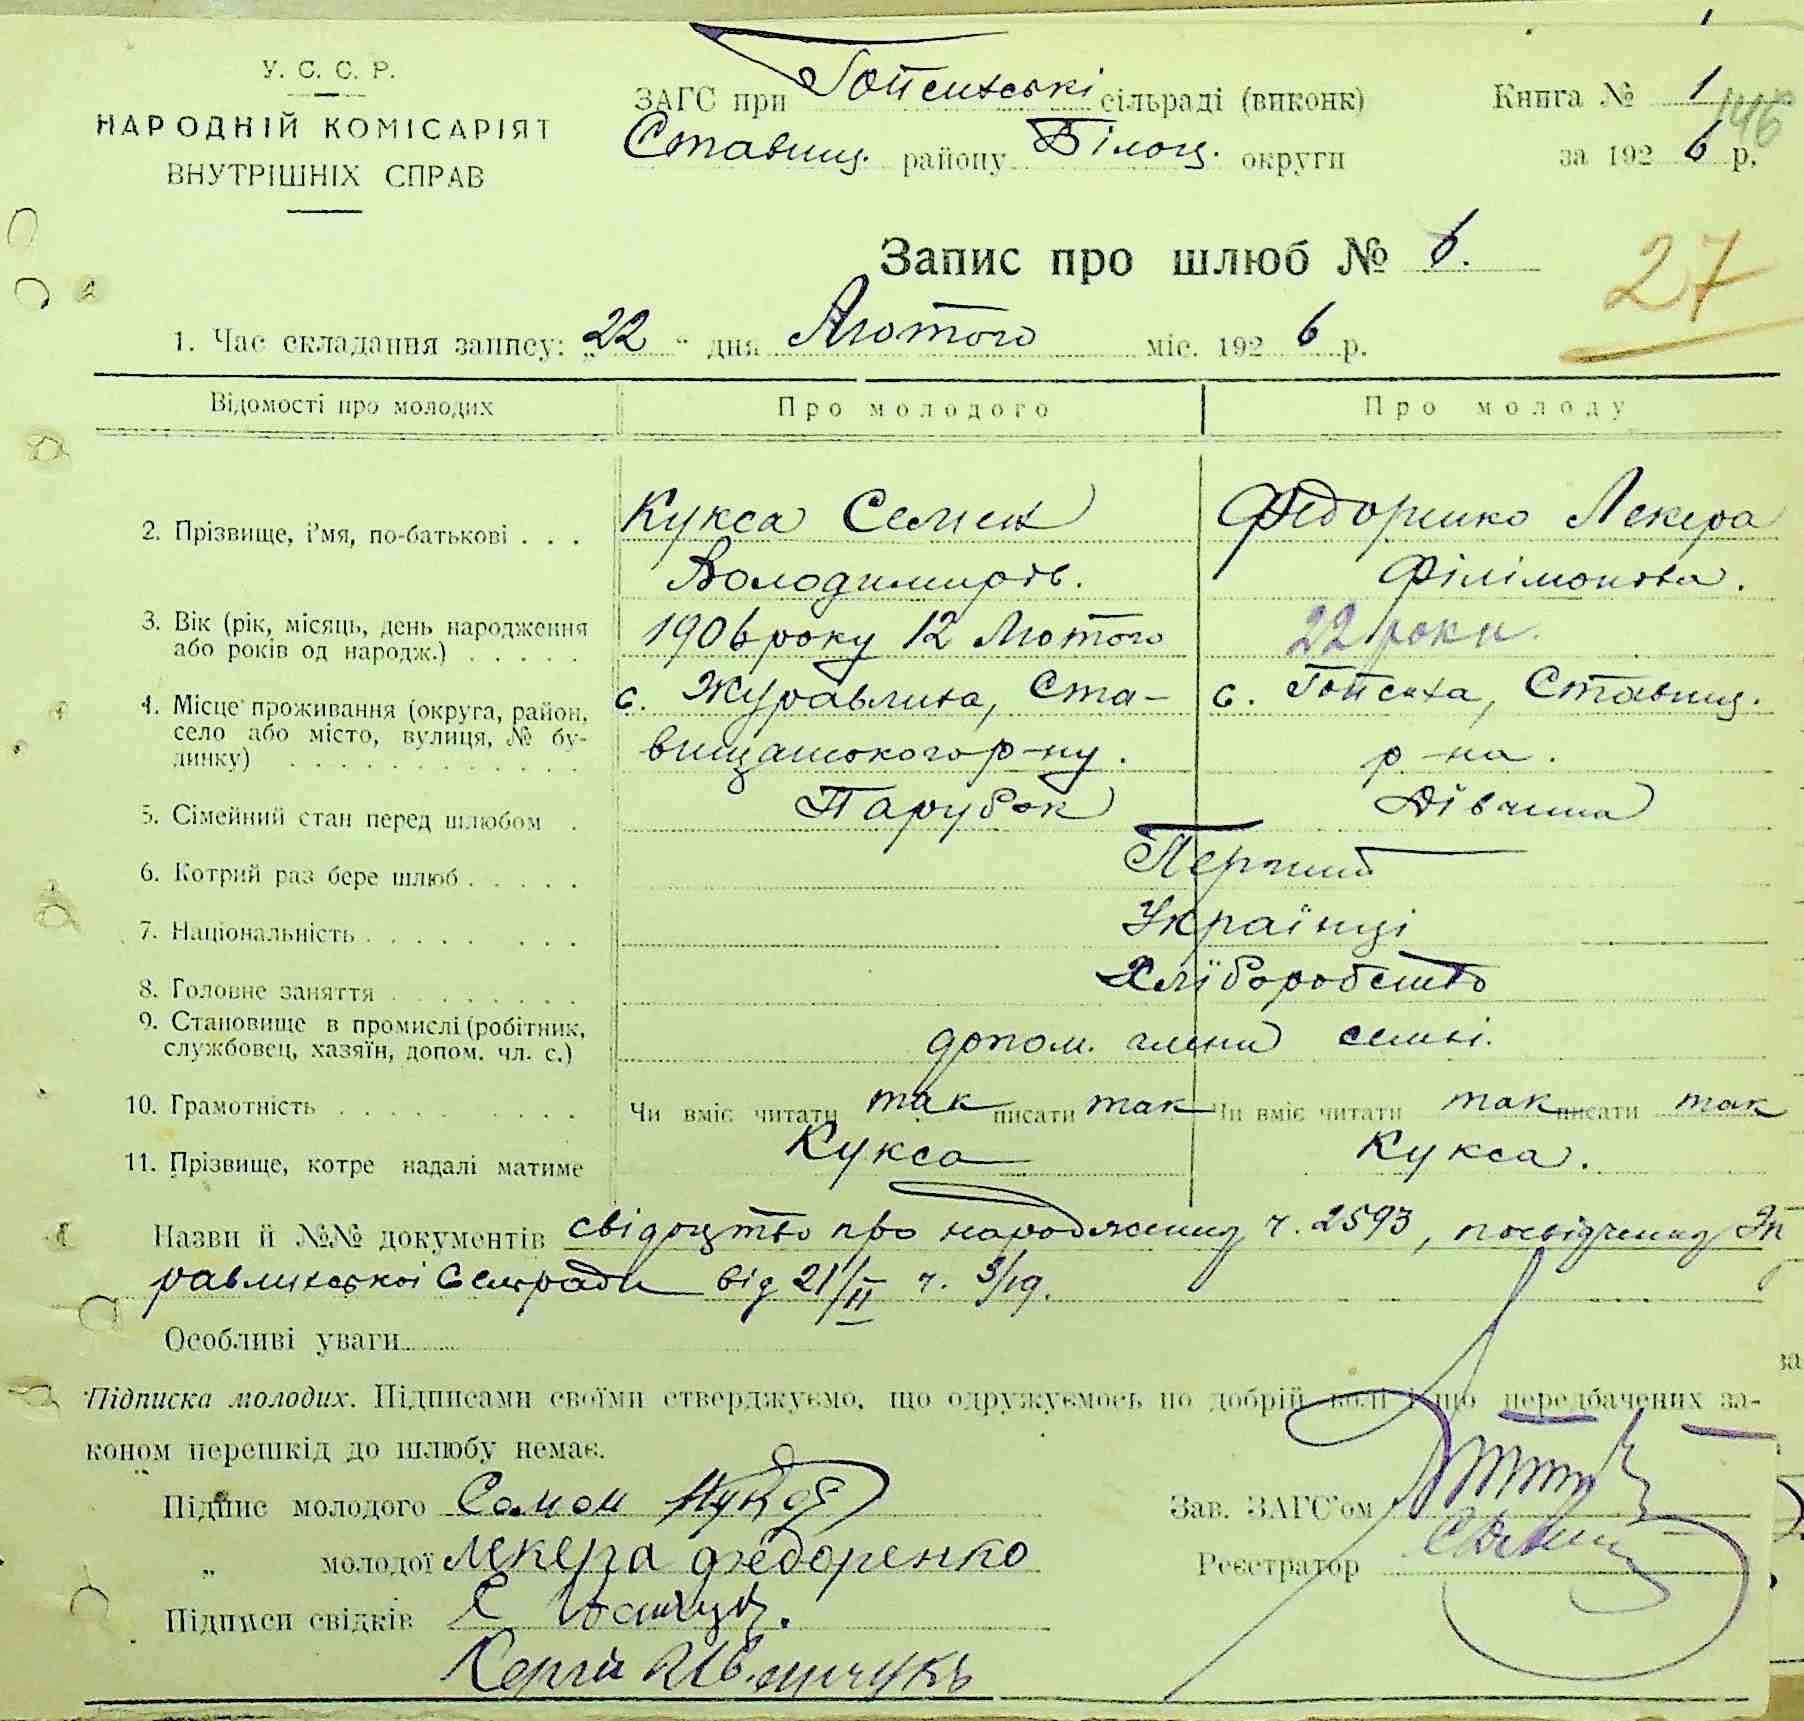 У. С. С. Р.
НАРОДНІЙ КОМІСАРІЯТ
ВНУТРІШНІХ СПРАВ
ЗАГС при Гойсихські сільраді (виконк)
Ставищ. району Білоц. округи
Книга № 1
146
за 1926 р.
Запис про шлюб № 6.
27
1. Час складання запису: „22 “ дня Лютого міс. 1926 р.
Відомості про молодих
Про молодого
Про молоду
2. Прізвище, і'мя, по-батькові . . .
Кукса Семен
Володимирів.
Федоренко Лекера
Філімонова.
3. Вік (рік, місяць, день народження
або років од народж.) . . . . .
1906 року 12 Лютого
22 роки.
4. Місце проживання (округа, район,
село або місто, вулиця, № бу-
динку) . . . . . . . . . . .
с. Журавлиха, Ста-
вищанського р-ну.
с. Гойсиха, Ставищ.
р-на.
5. Сімейний стан перед шлюбом .
Парубок
Дівчина
6. Котрий раз бере шлюб . . . . .
Перший
7. Національність . . . . . . . .
Українці
8. Головне заняття . . . . . . . .
Хліборобство
9. Становище в промислі (робітник,
службовец, хазяїн, допом. чл. с.)
допом. члени семьі.
10. Грамотність . . . . . . . . . .
Чи вміє читати так писати так
Чи вміє читати так писати так
11. Прізвище, котре надалі матиме
Кукса
Кукса.
Назви й №№ документів свідоцтво про народження ч. 2593, посвідчення Жу
равлихської Сельради від 21/II ч. 3/19.
Особливі уваги
Підписка молодих. Підписами своїми стверджуємо, що одружуємось по добрій волі і що передбачених за-
коном перешкід до шлюбу немає.
Підпис молодого Семен Кукса
„ молодої Лекера Федоренко
Підписи свідків
Сергій
Зав. ЗАГС'ом
Реєстратор